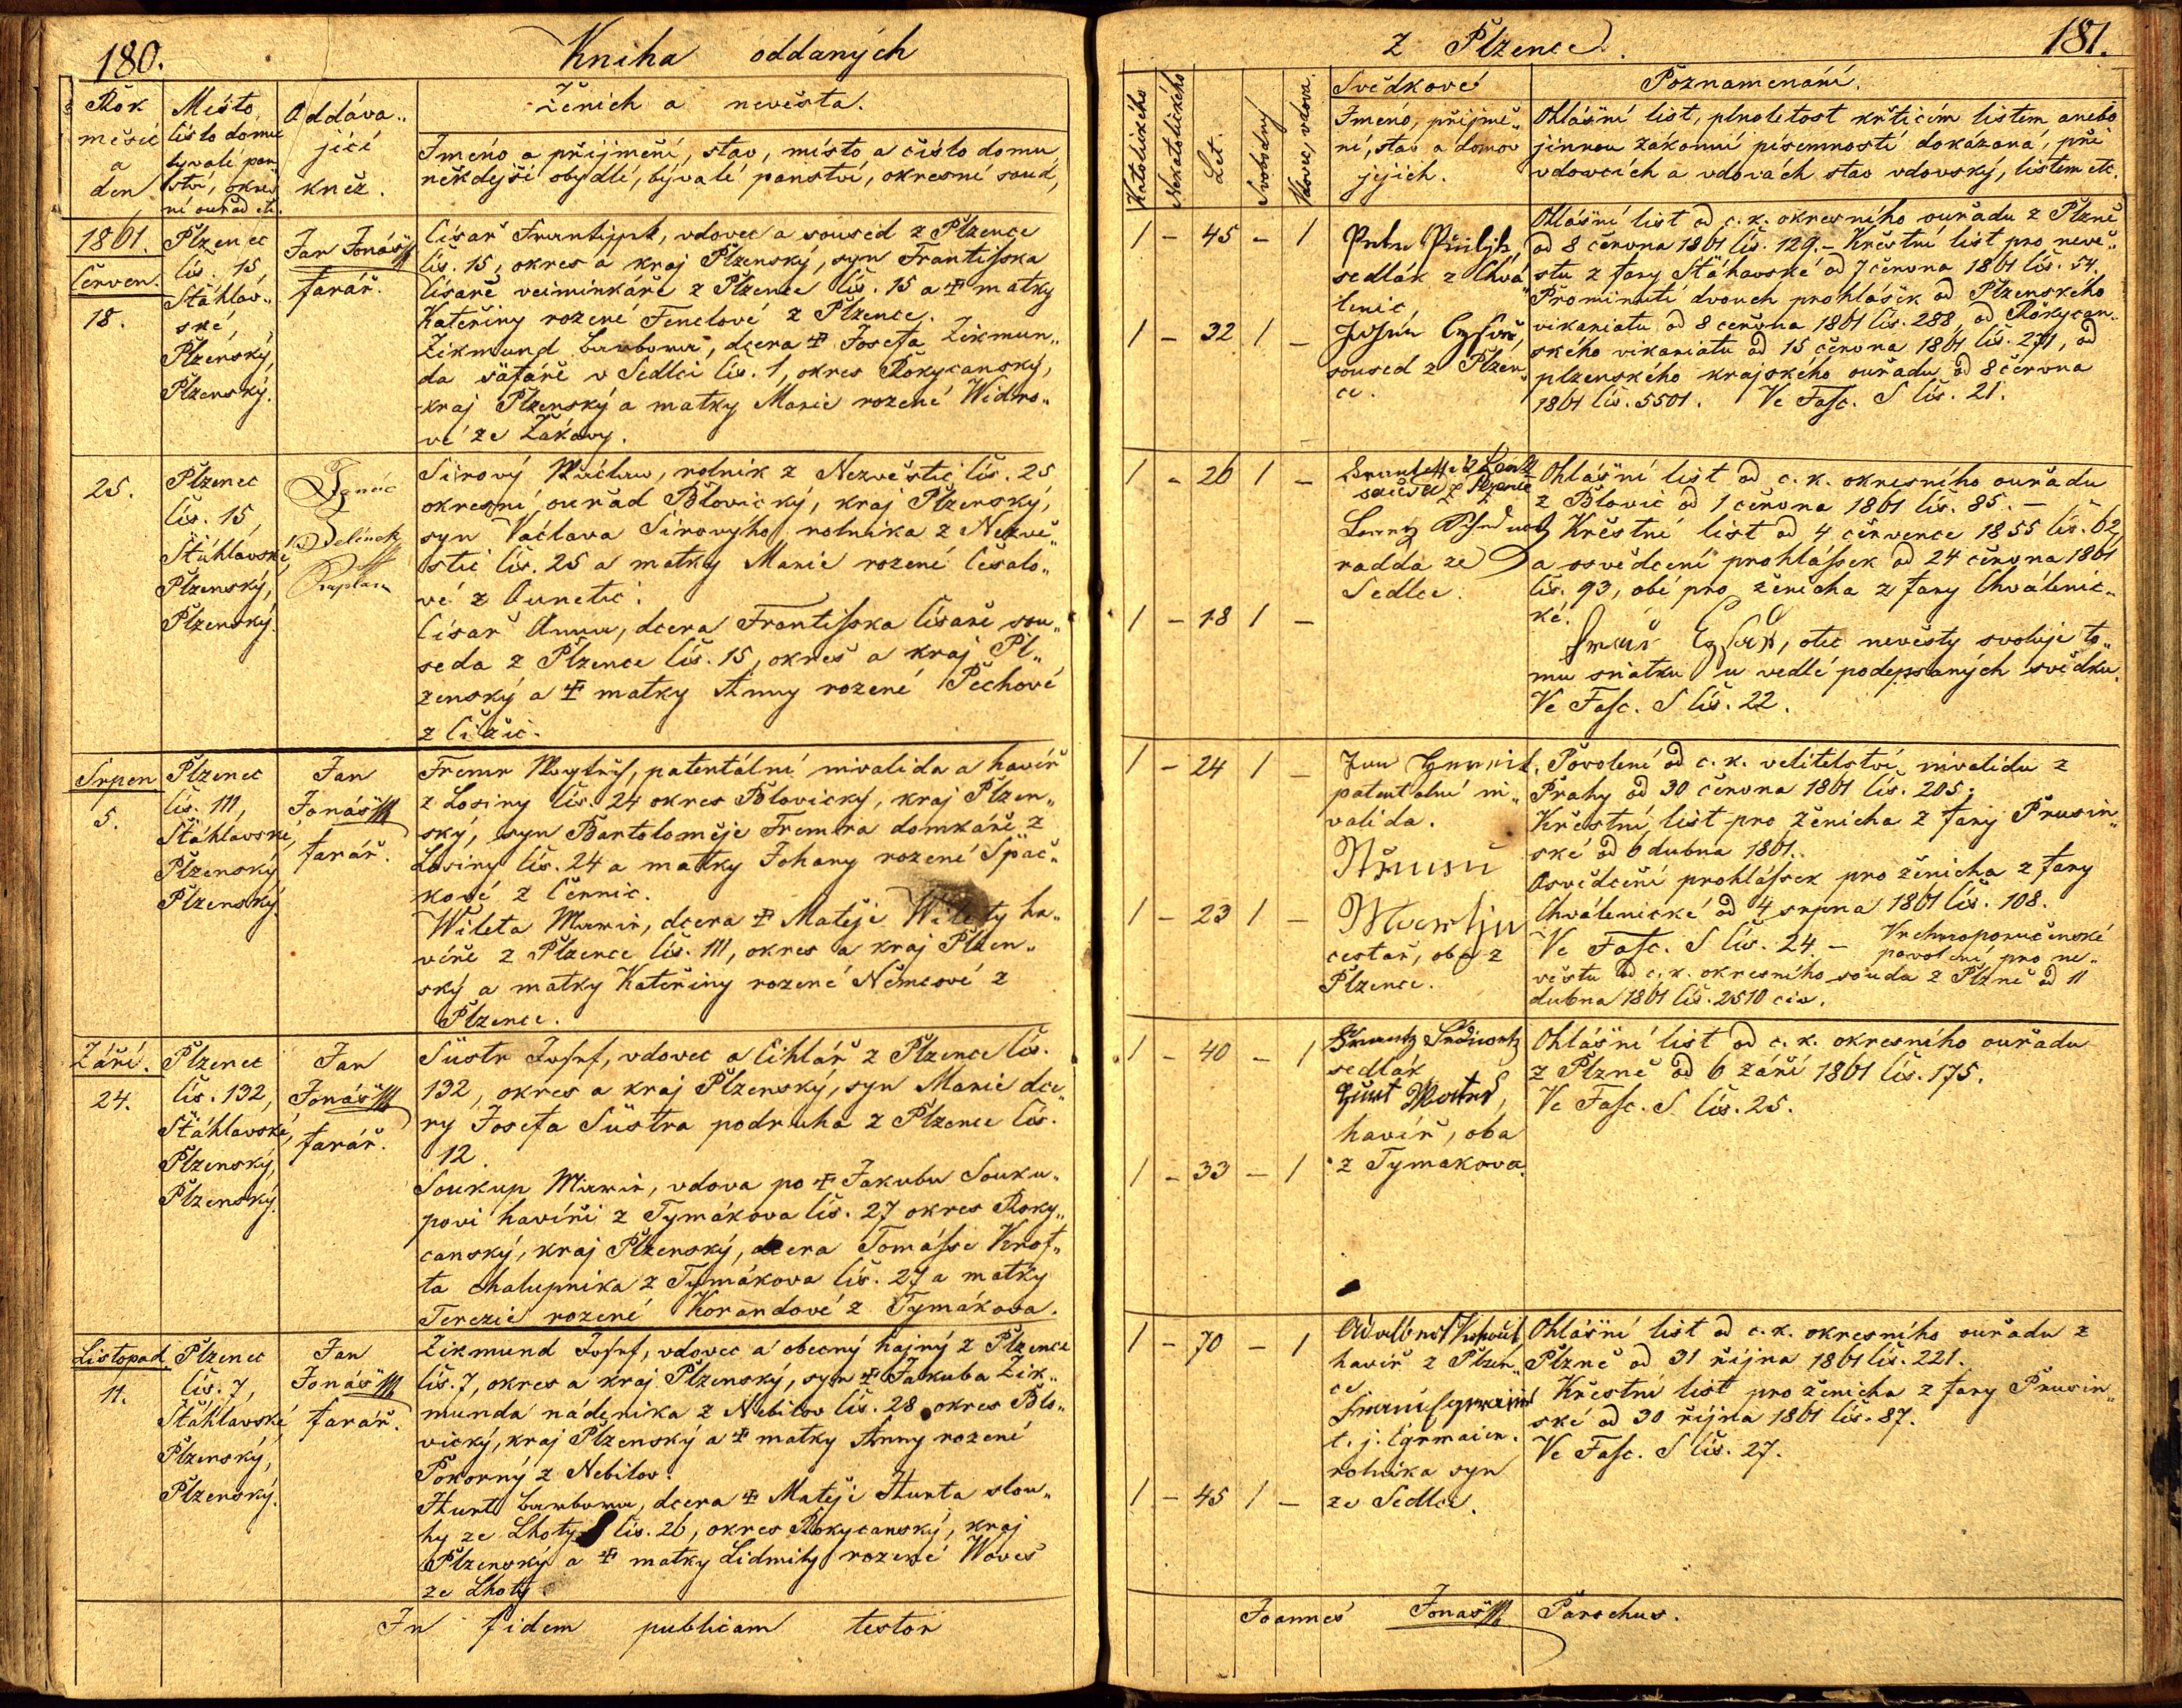 180.
Kniha oddaných
Rok
měsíc
a
den
Místo,
číslo domu
bývalé pan
ství, okres
ní ouřad etc.
Oddáva„
jící
kněz.
Ženich a nevěsta.
Jmeno a přijmení, stav, místo a číslo domu
někdejší obydlí, bývalé panství, okresní soud,
1861.
Červen.
18.
Plzenec
čís. 15,
Štáhlav„
ské,
Plzenský,
Plzenský.
Jan Jonáš
farář.
Císař Frantisek, vdovec a soused z Plzence
čís. 15, okres a kraj Plzenský, syn Františka
Císaře veiminkáře z Plzence čís. 15 a ☩ matky
Kateřiny rozené Fenclové z Plzence.
Zikmund Barbora, dcera ☩ Josefa Zikmun„
da šafáře v Sedlci čís. 1, okres Rokycanský,
kraj Plzenský a matky Marie rozené Widro„
vé ze Žákavy.
25.
Plzenec
čís. 15,
Štáhlavské,
Plzenský,
Plzenský.
Ignác
Jelínek
Kaplan
Sirový Wáclaw, rolník z Nezvěstic čís. 25
okresní ouřad Blovický, kraj Plzenský,
syn Václava Sirovýho rolníka z Nezvě„
stic čís. 25 a matky Marie rozené Česalo„
vé z Ounětic.
Císař Anna, dcera Františka Císaře sou„
seda z Plzence čís. 15, okres a kraj Pl„
zenský a ☩ matky Anny rozené Pechové
z Čižic.
Srpen
5.
Plzenec
čís. 111,
Štáhlavské,
Plzenský
Plzenský.
Jan
Jonáš
farář.
Fremr Wogtěch, patentální invalida a havíř
z Losiny čís. 24 okres Blovický, kraj Plzen„
ský, syn Bartoloměje Fremra domkáře z
Losiny čís. 24 a matky Johany rozené Špač„
kové z Černic.
Wileta Marie, dcera ☩ Matěje Wilety ha„
víře z Plzence čís. 111, okres a kraj Plzen„
ský a matky Kateřiny rozené Němcové z
Plzence.
Září.
24.
Plzenec
čís. 132,
Štáhlavské,
Plzenský,
Plzenský.
Jan
Jonáš
farář.
Šustr Josef, vdovec a cihlář z Plzence čís.
132, okres a kraj Plzenský, syn Marie dce„
ry Josefa Šustra podruha z Plzence čís.
12.
Soukup Marie, vdova po ☩ Jakubu Souku„
povi havíři z Tymákova čís. 27 okres Roky„
canský, kraj Plzenský, dcera Tomáše Krof„
ta chalupníka z Tymákova čís. 27 a matky
Terezie rozené Korandové z Tymákova.
Listopad
11.
Plzenec
čís. 7,
Štáhlavské,
Plzenský,
Plzenský.
Jan
Jonáš
farář.
Zikmund Josef, vdovec a obecný hajný z Plzence
čís. 7, okres a kraj Plzenský, syn ☩ Jakuba Zik„
munda nádeníka z Nebílov čís. 28 okres Blo„
vický, kraj Plzenský a ☩ matky Anny rozené
Pokorný z Nebílov.
Hurt Barbora, dcera ☩ Matěje Hurta slou„
hy ze Lhoty čís. 26, okres Rokycanský, kraj
Plzenský a ☩ matky Lidmily rozené Woves
ze Lhoty.
In fidem publicam testor
z Plzence.
181.
Katolického
Nekatolického
Let.
Svobodný
Vdovec, vdova.
Svědkové
Jmeno, přijme„
ní, stav a domov
jejich.
Poznamenání.
Ohlášní list, plnoletost křticím listem anebo
jinnou zákonní písemností dokázaná, při
vdovcích a vdovách stav vdovský, listem etc.
1 - 45 - 1
sedlák z Chvá„
lenic
1 - 32 1 -
soused z Plzen„
ce.
Ohlášní list od c. k. okresního ouřadu z Plzně
od 8 června 1861 čís. 129. – Křestní list pro nevě„
stu z fary Štáhavské od 7 června 1861 čís. 54.
Prominutí dvouch prohlášek od Plzenského
vikariatu od 8 června 1861 čís. 288, od Rokycan„
ského vikariatu od 15 června 1861 čís. 271, od
plzenského krajského ouřadu od 8 června
1861 čís. 5501. Ve Fasc. S čís. 21.
1 - 26 1 -
soused z Plzence
radda ze
Sedlce.
1 - 18 1 -
Ohlášní list od c. k. okresního ouřadu
z Blovic od 1 června 1861 čís. 85. –
Křestní list od 4 července 1855 čís. 62,
a osvědcení prohlášek od 24 června 1861
čís. 93, obé pro ženicha z fary Chválenic„
ké.
otec nevěsty svoluje to„
mu sňatku u vedlé podepsaných svědku.
Ve Fasc. S čís. 22.
1 - 24 1 -
Jan
patentalní in„
valida.
1 - 23 1 -
Martin
cestař, oba z
Plzence.
Povolení od c. k. velitelství invalidu z
Prahy od 30 června 1861 čís. 205;
Křestní list pro ženicha z fary Prusin„
ské od 6 dubna 1861.
Osvědcení prohlášek pro ženicha z fary
Chválenické od 4 srpna 1861 čís. 108.
Ve Fasc. S čís. 24. – Vrchnoporučenské
povolení pro ne„
věstu od c. k. okresního souda z Plzně od 11
dubna 1861 čís. 2510 civ.
1 - 40 - 1
sedlák
havíř, oba
1 - 33 - 1
z Tymakova.
Ohlášní list od c. k. okresního ouřadu
z Plzně od 6 září 1861 čís. 175.
Ve Fasc. S čís. 25.
1 - 70 - 1
havíř z Plzen„
ce
rolníka syn
1 - 45 1 -
ze Sedlce.
Ohlášní list od c. k. okresního ouřadu z
Plzně od 31 října 1861 čís. 221.
Křestní list pro ženicha z fary Prusin„
ské od 30 října 1861 čís. 87.
Ve Fasc. S čís. 27.
Joannes Jonáš Parochus.